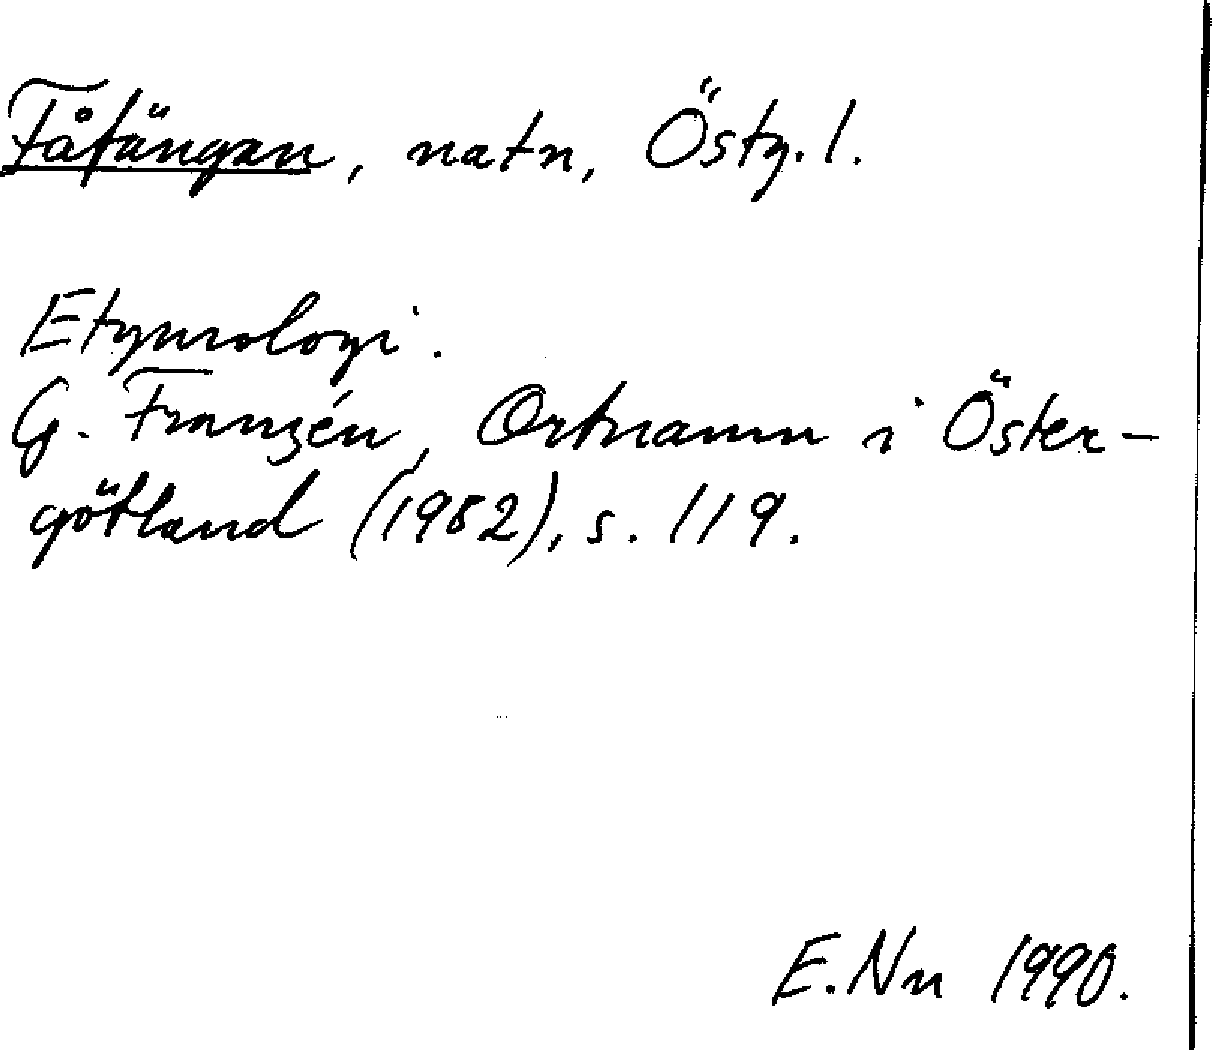 Fåfängan, natn, Östg. l.
Etymologi.
G. Franzén, Ortnamn i Öster-
götland (1982), s. 119.
E. Nn 1990.